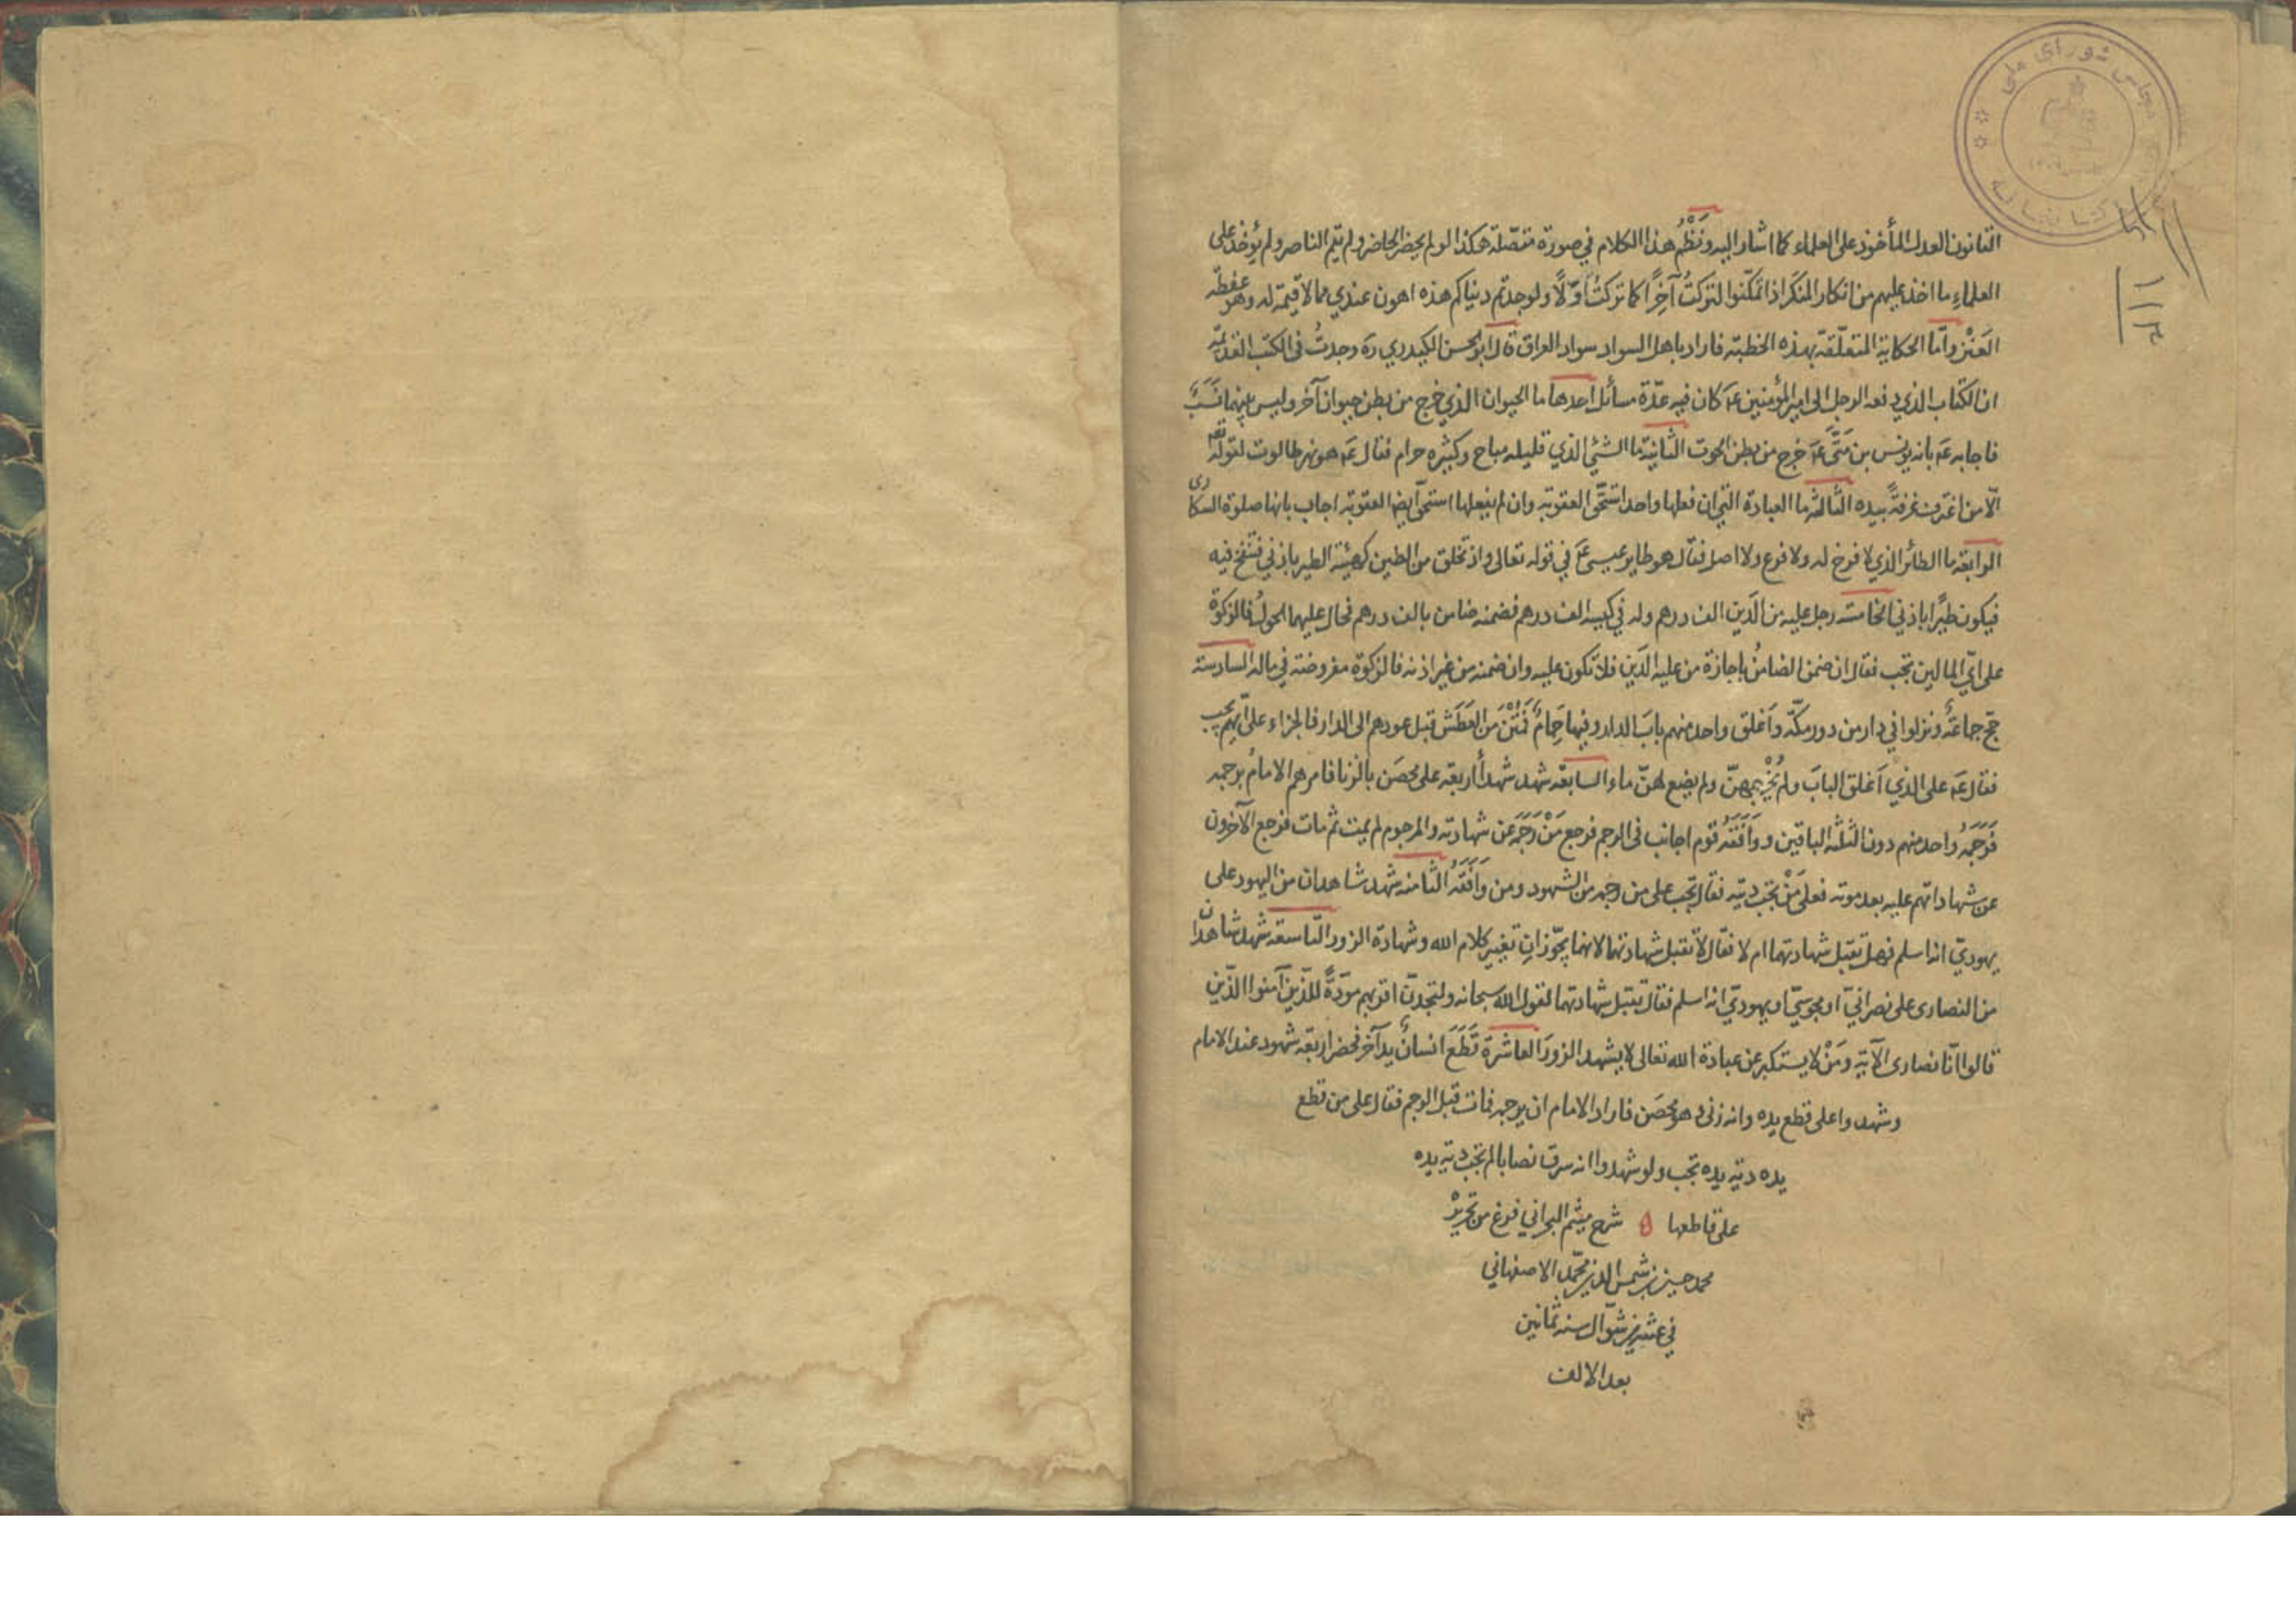 مجلس شورای ملی
کتابخانه
١١٣
القانون العدل المأخوذ على العلماء كما اشار اليه ونَظْمُ هذا الكلام في صورة متصّلة هكذا لو لم يحضر الحاضر ولم يقم الناصر ولم يؤخذ على
العلماءِ ما اخذ عليهم من انكار المنكَر اذا تمكّنوا لتركتُ آخِرًا كما تركتُ اوّلًا ولوجدتم دنياكم هذه اهون عندي مما لا قيمة له وهو عفطة
العَنْز وامّا الحكاية المتعلّقة بهذه الخطبة فاراد باهل السواد سواد العراق قال ابو الحسن الكيدري ره وجدتُ فى الكتب القديمة
ان الكتاب الذي دفعه الرجل الى امير المؤمنين عَم كان فيه عدّة مسائل احدها ما الحيوان الذي خرج من بطن حيوان آخر وليس بينهما نَسَبٌ
فاجابه عَم بانه يونس بن مَتّى عَم خرج من بطن الحوت الثانية ما الشئ الذي قليله مباح وكثيره حرام فقال عَم هو نهر طالوت لقوله تعم
الّا من اغترف غرفةً بيده الثالثة ما العبادة التي ان فعلها واحد استحقّ العقوبة وان لم يفعلها استحق ايضا العقوبة اجاب بانها صلوة السكارى
الرابعة ما الطائر الذي لا فرخ له ولا فرع ولا اصل فقال هو طاير عيسى عَم في قوله تعالى واذ تخلق من الطين كهيئة الطير باذني فتنفخ فيه
فيكون طيرًا باذني الخامسة رجل عليه من الدَين الف درهم وله في كيسه الف درهم فضمنه ضامن بالف درهم فحال عليهما الحولُ فالزكوة
على ايّ المالين تجب فقال ان ضمن الضامنُ باجازة من عليه الدَين فلا تكون عليه وان ضمنه من غير اذنه فالزكوة مفروضة في ماله السادسة
حَج جماعَةٌ ونزلوا في دار من دور مكّة وَاَغلق واحد منهم بابَ الدار وفيها حَمامٌ فَمُتْنَ مَن العَطَش قبل عودهم الى الدار فالجزاء على ايّهم يجب
فقال عَم على الذي اَغلق البابَ ولم يُخْرِجهنّ ولم يضع لهنّ ماء السابعة شهد شهداءُ اربعة على محصَن بالزنا فامرهم الامامُ برجمه
فَرَجَمَهُ واحد منهم دون الثلثة الباقين ووَافَقَهُ قوم اجانب فى الرجم فرجع مَنْ رَجَمَه عن شهادته والمرجوم لم يمت ثم مات فرجع الآخرون
عن شهاداتهم عليه بعد موته فعلى مَنْ تجب ديته فقال تجب على من رجمه من الشهود ومن وَافَقَهُ الثامنة شهد شاهدان من اليهود على
يهوديّ انه اسلم فهل تقبل شهادتهما ام لا فقال لا تقبل شهادتهما لانهما يجوّزانِ تغيير كلام الله وشهادة الزور التاسعة شهد شاهدان
من النصارى على نصرانيّ او مجوسيّ او يهوديّ انه اسلم فقال تقبل شهادتهما لقول الله سبحانه ولتجدنّ اقربهم مودّةً للّذين آمنوا الّذين
قالوا انّا نصارى الآية ومَنْ لا يستكبر عن عبادة الله تعالى لا يشهد الزورَ العاشرة قَطَعَ انسانٌ يد آخر فحضر اربعة شهود عند الامام
وشهدوا على قطع يده وانه زنى وهو محصَن فاراد الامام ان يرجمه فمات قبل الرجم فقال على من قطع
يده دية يده تجب ولو شهدوا انه سرق نصابا لم تجب دية يده
على قاطعها شرح ميثم البحراني فرغ من تحريره
محمد حسين بن شمس الدين محمّد الاصفهاني
في عشرين شوّال سنه ثمانين
بعد الالف